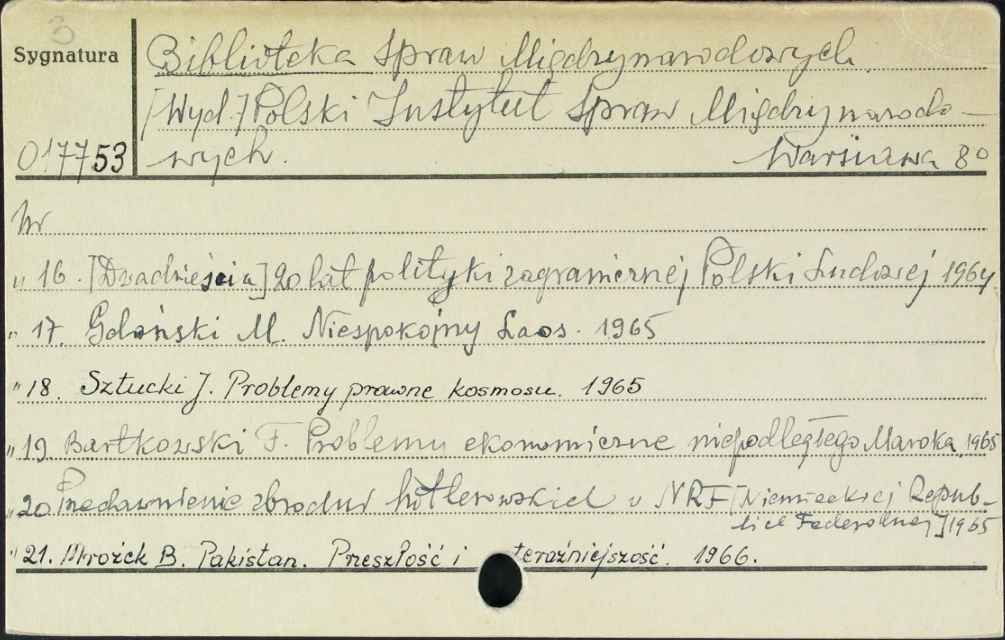 3
Sygnatura
Biblioteka Spraw Międzynarodowych
[Wyd.] Polski Instytut Spraw Międzynarodo-
017753 wych. Warszawa 8°
Nr
" 16. [Dwadzieścia] 20 lat polityki zagranicznej Polski Ludowej 1964
" 17. Gdański M. Niespokojny Laos. 1965
" 18. Sztucki J. Problemy prawne kosmosu. 1965
" 19 Bartkowski F. Problemy ekonomiczne niepodległego Maroka, 1965
" 20 Przedawnienie zbrodni hitlerowskich w NRF [Niemieckiej Repub-
lice Federalnej] 1965
" 21. Mrozek B. Pakistan. Przeszłość i teraźniejszość. 1966.